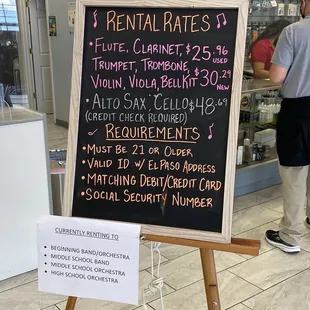 ♪ RENTAL RATES ♪
• FLUTE, CLARINET, $25.96 USED
TRUMPET, TROMBONE,
VIOLIN, VIOLA, BELL KIT $30.29 NEW
• ALTO SAX, CELLO $48.69
(CREDIT CHECK REQUIRED)
REQUIREMENTS
• MUST BE 21 OR OLDER
• VALID ID W/ EL PASO ADDRESS
• MATCHING DEBIT/CREDIT CARD
• SOCIAL SECURITY NUMBER
CURRENTLY RENTING TO:
BEGINNING BAND/ORCHESTRA
MIDDLE SCHOOL BAND
MIDDLE SCHOOL ORCHESTRA
HIGH SCHOOL ORCHESTRA